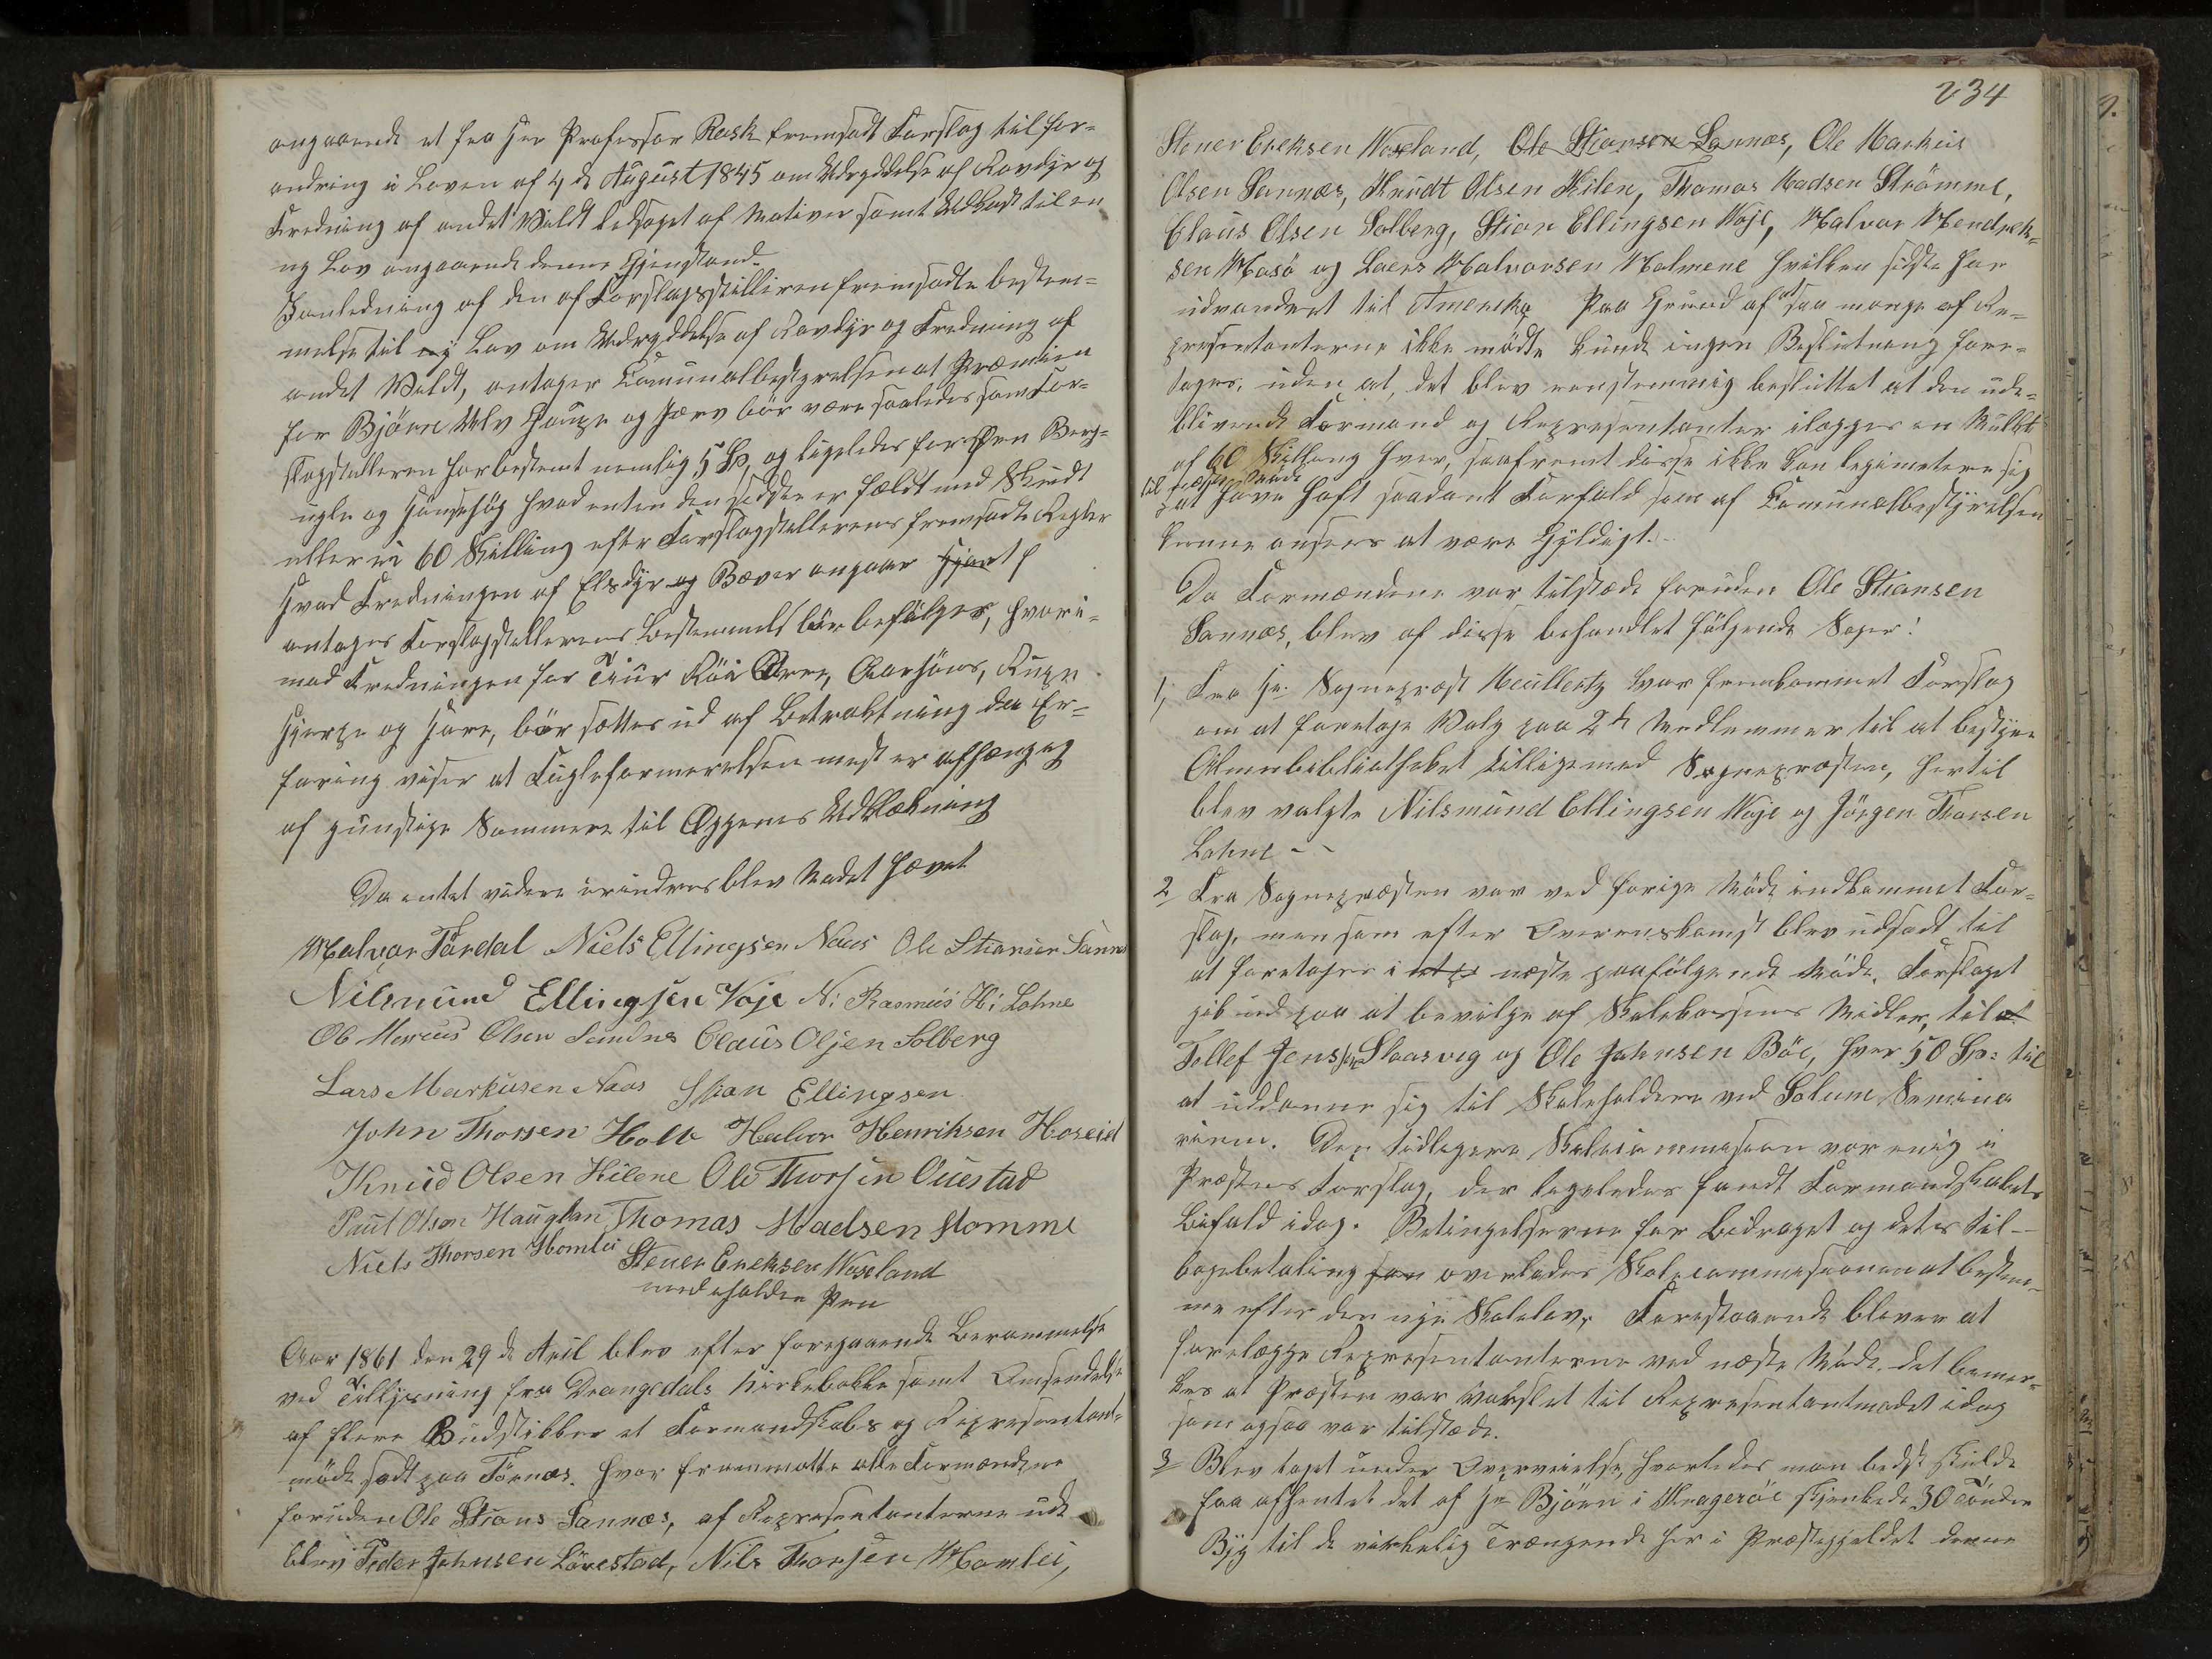 angaaende et fra Herr Professor Rask fremsadt Forslag til for=
andring i Loven af 4 de August 1845 om Udryddelse af Rovdyr og
Fredning af andet Vildt ledsaget af Motiver samt Udkast til en
ny Lov angaaende denne Gjenstand.
I Anledning af den af Forslagsstilleren fremsadte bestem=
melse til ny Lov om Udryddelse af Rovdyr og Fredning af
andet Vildt, antager Comunalbestyrelsen at Præmien
for Björn Ulv Goupe og Jærv bör være saaledes som For=
slagstilleren har bestemt nemlig 5 Sp, og ligeledes for Örn Berg=
ugle og Hönsehög hvad enten den sidste er fældt med Skudt
eller ei 60 Skilling efter Forslagstillerens fremsadte Regler
Hvad Fredningen af Elsdyr og Bæver angaar Hjort
antages Forslagstillerens bestemmelse bör befölges, hvori=
mod Fredningen for Tiur Röi Orre, Aarhöns, Rype
Hjerpe og Hare, bör sættes ud af Betraktning da Er=
faring viser at Fugleformerelsen mest er afhængig
af gunstige Sommere til Æggenes Udklækning
Da entet videre erindres blev Mödet hævet
Halvor Tördal Niels Ellingsen Naas Ole Stiansen Sannes
Nilsmund Ellingsen Voje N: Rasmus H: Lohne
Ole Marcus Olsen Sandnes Claus Olsen Solberg
Lars Markusen Naas Stian Ellingsen
John Thorsen Holte Halvor Henriksen Hoseid
Knud Olsen Kilene Ole Thorsen Ouestad
Paul Olsen Hauglan Thomas Madsen Stömme
Niels Thorsen Homlei Stener Ereksen Woxeland
med eholden Pen
Aar 1861 den 29 de April blev efter foregaaende Berammelse
ved Tillysning fra Drangedals Kirkebakke samt Omsendelse
af flere Budstikker et Formandskabs og Representant=
möde sadt paa Törnæs. hvor fremmötte alle Formændene
foruden Ole Stians Sannæs, af Representanterne ude
blev Peder Johnsen Lövestad, Nils Thorsen Homlei,
234
Stener Ereksen Woxeland, Ole Stiansen Sannæs, Ole Markus
Olsen Sannæs, Knudt Olsen Kilen, Thomas Madsen Strömme,
Claus Olsen Solberg, Stian Ellingsen Woje, Halvor Hendrek=
sen Hosö og Laers Halvorsen Holmene hvilken sidste har
udvandret til Amereka Paa Grund af at saa mange af Re=
presentanterne ikke mödte kunde ingen Beslutning fore=
tages, uden at, det blev eenstemmig besluttet at den ude=
blivende Formand og Representanter ilægges en Mulkt
af 60 Skilling hver, saafremt disse ikke kan legimetere sig
til næste Möde
at have haft saadant Forfald som af Comunalbestyrelsen
kunne ansees at være Gyldigt.
Da Formændene var tilstede foruden Ole Stiansen
Sannæs, blev af disse behandlet fölgende Sager!
1, Fra Hr. Sognepræst Meullertz var fremkommet Forslag
om at foretage Valg paa 2de Medlemmer til at bestyre
Almubibliotheket tilligemed Sognepræsten, hertil
blev valgte Nilsmund Ellingsen Woje og Jörgen Thorsen
Lohne --
2 Fra Sognepræsten var ved forige Möde indkommet For=
slag, men som efter Overenskomst blev udsadt til
at foretages i næste paafölgende Möde. Forslaget
gik ud paa at bevilge af Skolekassens Midler, til at
Tollef Jenssen Slaasveg og Ole Johnsen Böe, hver 50 Sp: til
at uddanne sig til Skoleholdere ved Solum Semina
rium. Den tidligere Skolecommision var enig i
Præstens Forslag, der legeledes fandt Formandskabets
Bifald idag. Betingelserne for Bidraget og dets til-
bagebetaling overlades Skolecommisionen at bestem
me efter den nye Skolelov, Forestaaende bliver at
forelægge Representanterne ved næste Möde. det bemær=
kes at Præsten var varslet til Representantmödet idag
som ogsaa var tilstæde.
3 Blev taget under Overveielse, hvorledes man bedst skulde
faa afhentet det af Hr Björn i Kragerøe skjenkede 30 Tönder
Byg til de virkelig Trængende her i Præstegjeldet denne